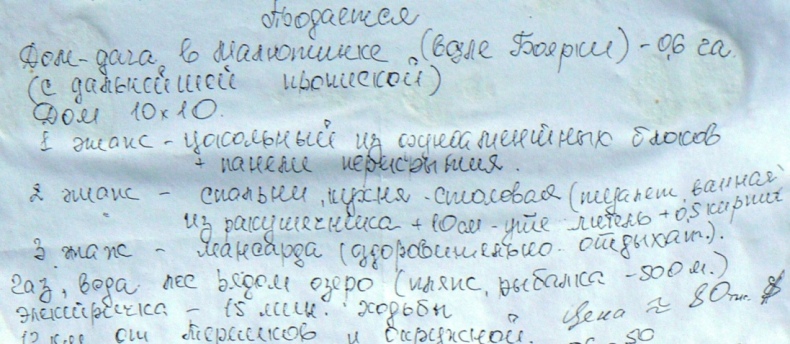 Продается
Дом-дача в Малютинке (возле Боярки) - 0,6 га.
(с дальнейшей пропиской)
Дом 10х10.
1 этаж - цокольный из фундаментных блоков
+ панели перекрытия.
2 этаж - спальни, кухня-столовая (туалет, ванная
из ракушечника + 10см утеплитель + 0,5 кирпич
3 этаж - мансарда (оздоровительно-отдыхат.).
Газ, вода лес рядом озеро (пляж, рыбалка - 500 м.)
электричка - 15 мин. ходьбы
Цена ≈ 80 т. $
12 км от Теремков и окружной.